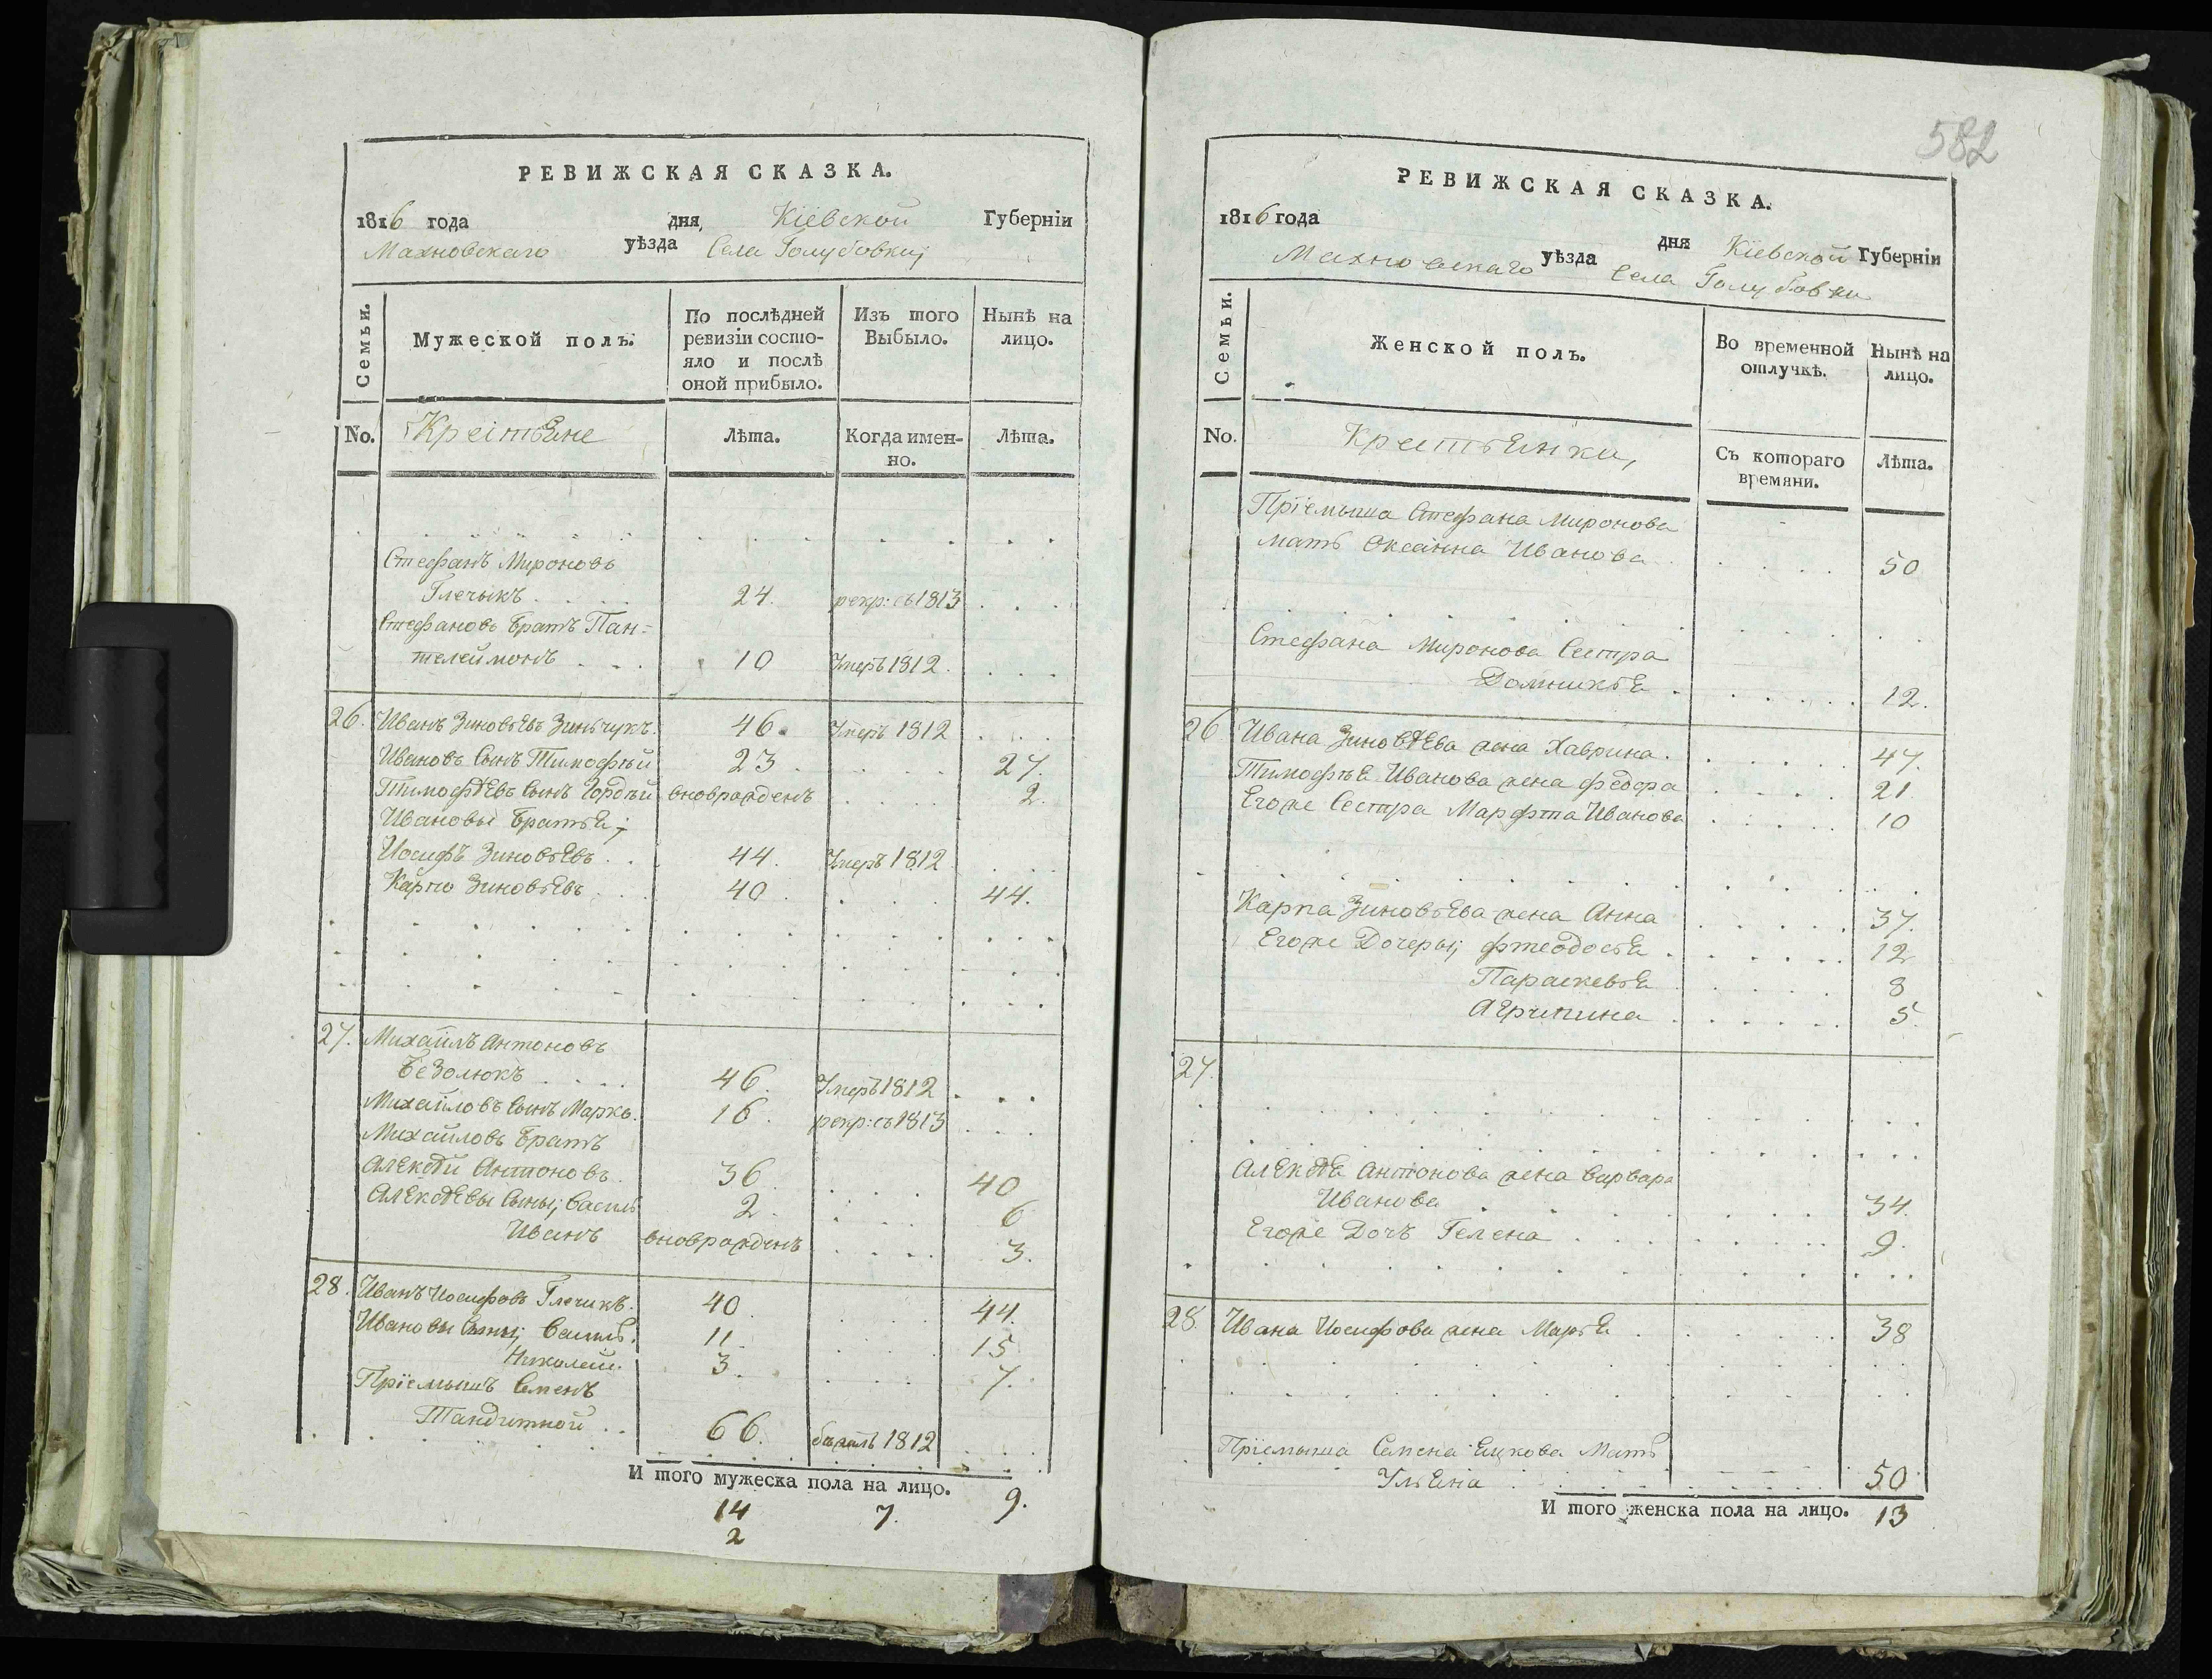 РЕВИЖСКАЯ СКАЗКА.
1816 года дня, Кіевской Губерніи
Махновскаго уѣзда Села Голубовки;
Семьи. Мужеской полъ. По послѣдней ревизіи состояло и послѣ оной прибыло. Изъ того Выбыло. Нынѣ на лицо.
No. Крестьяне Лѣта. Когда именно. Лѣта.
Стефанъ Мироновъ
Глечыкъ 24. рекр: съ 1813
Стефановъ Братъ Пан=
телеймонъ 10 Умеръ 1812.
26. Иванъ Зиновьевъ Зинчукъ. 46. Умеръ 1812
Ивановъ Сынъ Тимофѣй 23 27.
Тимофѣевъ Сынъ Гордѣй вновражденъ 2.
Ивановы Братья;
Иосифъ Зиновьевъ 44. Умеръ 1812
Карпо Зиновьевъ 40 44.
27. Михайлъ Антоновъ
Безолюкъ 46. Умеръ 1812
Михайловъ Сынъ Марко. 16. рекр: съ 1813
Михайловъ Братъ
Алексѣй Антоновъ. 36 40
Алексѣевы Сыны; Василь 2. 6
Иванъ вновражденъ 3.
28. Иванъ Иосифовъ Глечикъ. 40 44.
Ивановы Сыны; Василь. 11 15
Николай. 3. 7.
Пріемышъ Семенъ
Тандитной 66. бежалъ 1812
И того мужеска пола на лицо.
14 7. 9.
2
582
РЕВИЖСКАЯ СКАЗКА.
1816 года дня Кіевской Губерніи
Махновскаго уѣзда Села Голубовки
Семьи. Женской полъ. Во временной отлучкѣ. Нынѣ на лицо.
No. Крестьянки, Съ котораго времяни. Лѣта.
Пріемыша Стефана Миронова
мать Оксанна Иванова 50
Стефана Миронова Сестра
Домникья 12.
26 Ивана Зиновѣева жена Хаврина. 47.
Тимофѣя Иванова жена Феодра 21
Егоже Сестра Марфта Иванова 10
Карпа Зиновьева жена Анна 37.
Егоже Дочеры; Фтеодосья 12
Параскевья 8
Агрипина 5.
27.
Алексѣя Антонова жена Варвара
Иванова 34.
Егоже Дочъ Гелена 9.
28. Ивана Иосифова жена Марья 38
Пріемыша Семена Ецкова Мать
Ульяна 50
И того женска пола на лицо. 13